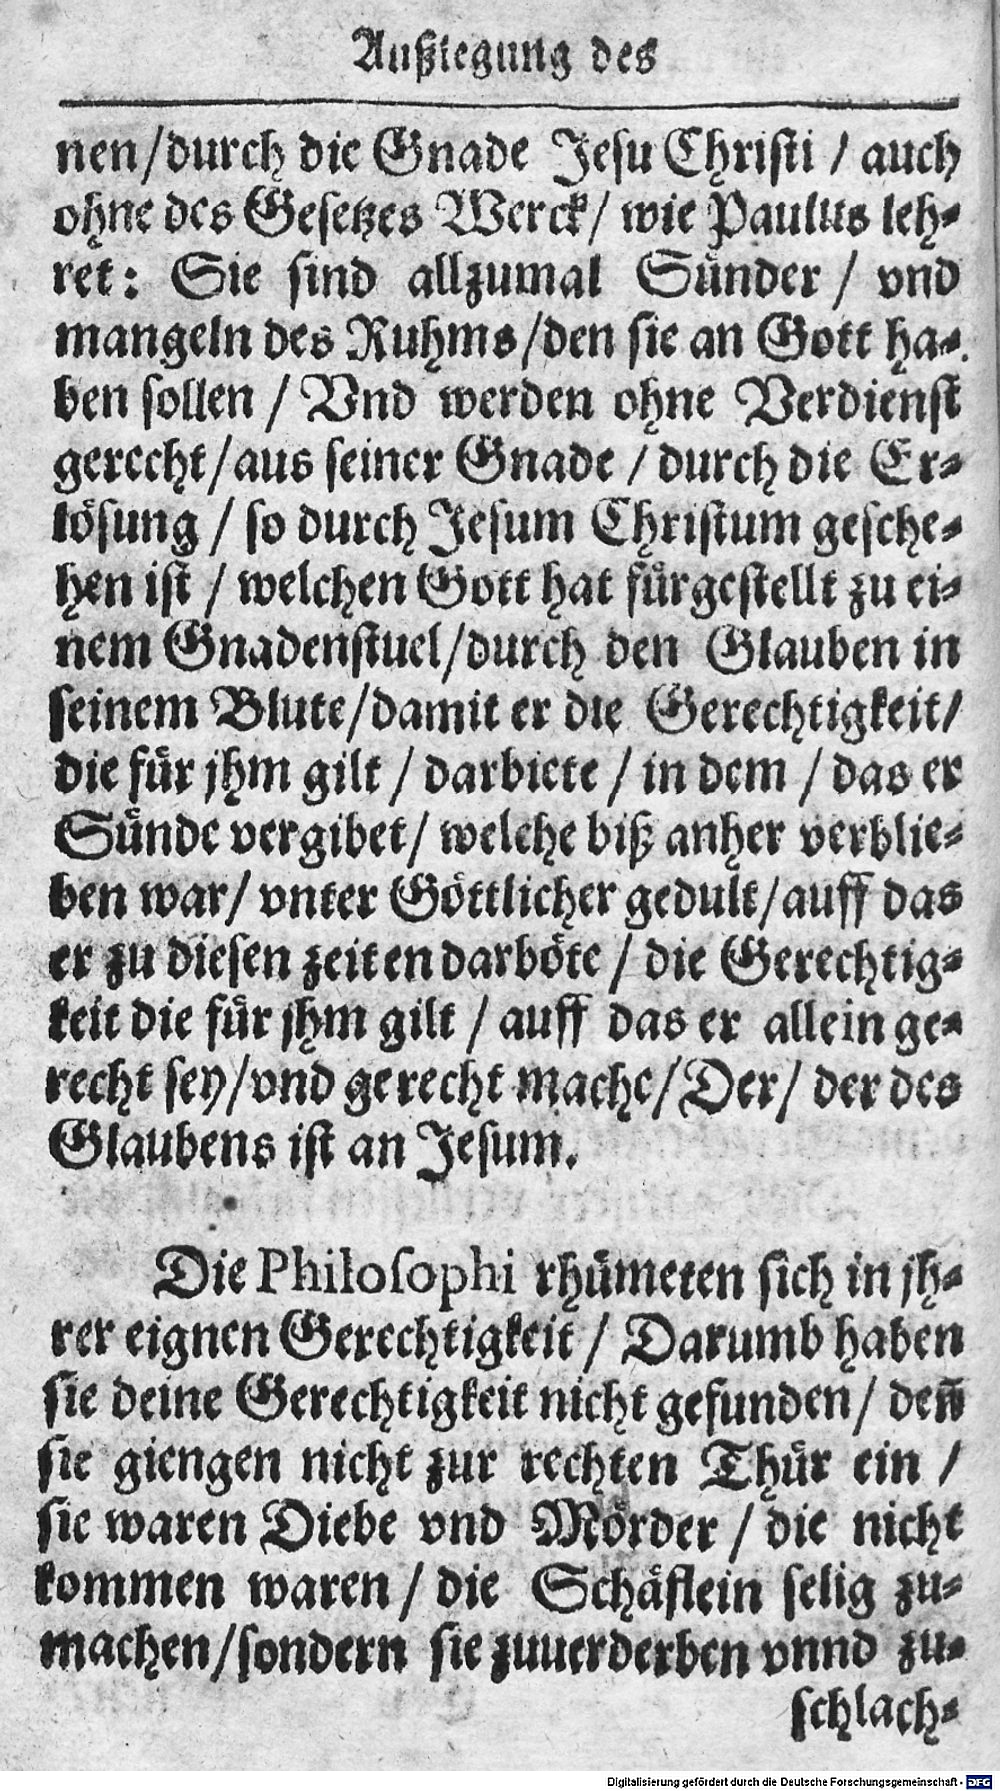 Außlegung des
nen/durch die Gnade Jesu Christi / auch
ohne des Gesetzes Werck/ wie Paulus leh-
ret: Sie sind allzumal Sünder / vnd
mangeln des Ruhms/den sie an Gott ha-
ben sollen / Vnd werden ohne Verdienst
gerecht/aus seiner Gnade / durch die Er-
lösung / so durch Jesum Christum gesche-
hen ist / welchen Gott hat fürgestellt zu ei-
nem Gnadenstuel/durch den Glauben in
seinem Blute/damit er die Gerechtigkeit/
die für jhm gilt / darbiete / in dem / das er
Sünde vergibet/ welche biß anher verblie-
ben war/ vnter Göttlicher gedult/auff das
er zu diesen zeiten darböte / die Gerechtig-
keit die für jhm gilt / auff das er allein ge-
recht sey/vnd gerecht mache/Der/ der des
Glaubens ist an Jesum.
Die Philosophi rhümeten sich in jh-
rer eignen Gerechtigkeit / Darumb haben
sie deine Gerechtigkeit nicht gefunden/ den̄
sie giengen nicht zur rechten Thür ein /
sie waren Diebe vnd Mörder / die nicht
kommen waren / die Schäflein selig zu-
machen/sondern sie zuuerderben vnnd zu-
schlach-
Digitalisierung gefördert durch die Deutsche Forschungsgemeinschaft - DFG